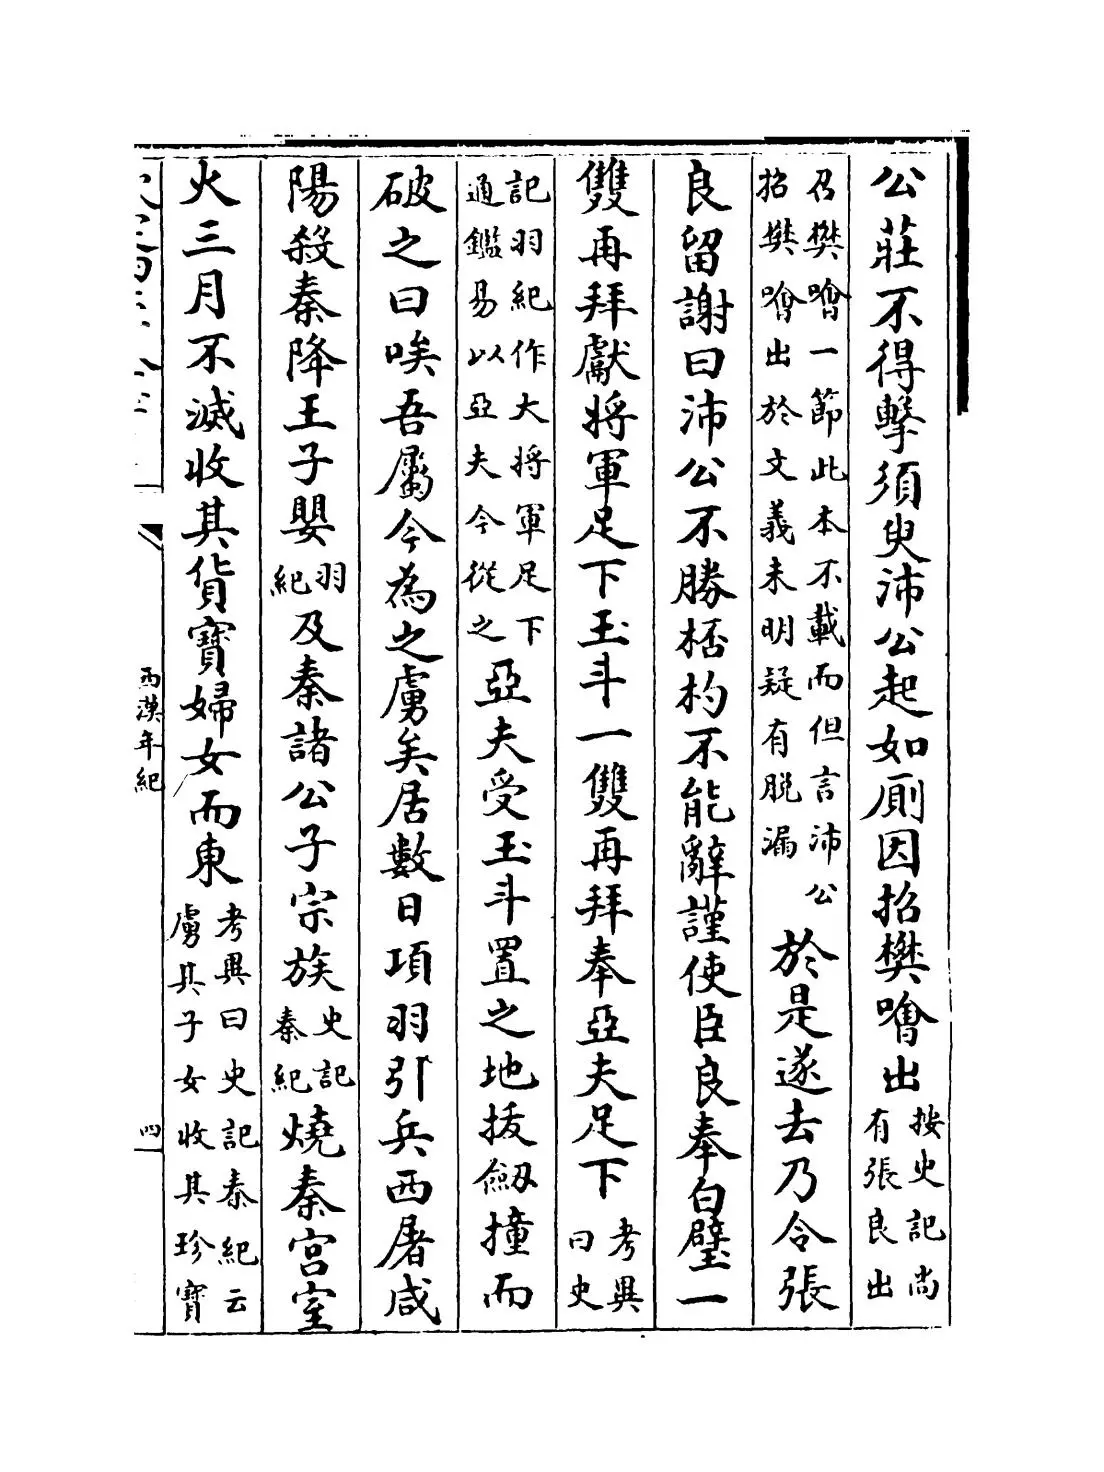 公莊不得擊須臾沛公起如厠因招樊噲出按史記尚有張良出
召樊噲一節此本不載而但言沛公招樊噲出於文義未明疑有脱漏於是遂去乃令張
良留謝曰沛公不勝桮杓不能辭謹使臣良奉白璧一
雙再拜獻將軍足下玉斗一雙再拜奉亞夫足下考異曰史
記羽紀作大將軍足下通鑑易以亞夫今從之亞夫受玉斗置之地拔劔撞而
破之曰唉吾屬今為之虜矣居數日項羽引兵西屠咸
陽殺秦降王子嬰羽紀及秦諸公子宗族史記秦紀燒秦宮室
火三月不滅收其貨寶婦女而東考異曰史記秦紀云虜其子女收其珍寶
西漢年紀
四